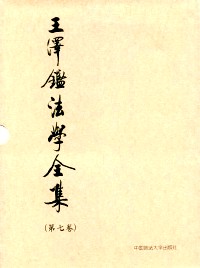 王澤鑑法學全集
(第七卷)
中国政法大学出版社